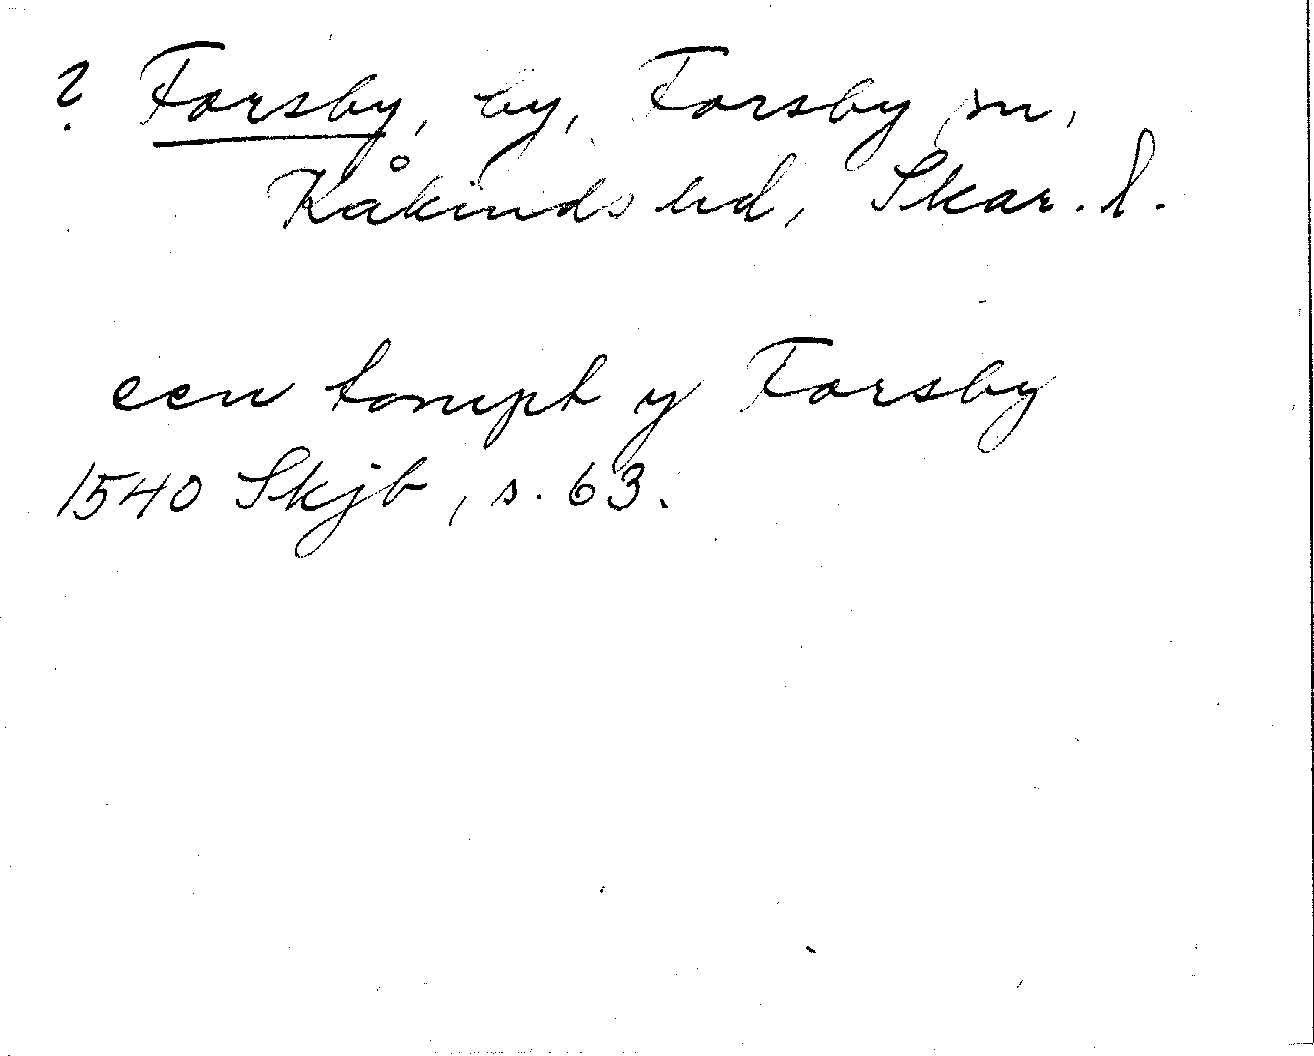 ? Forsby, by, Forsby sn,
Kåkinds hd, Skar. l.
een tompt y Forsby
1540 Skjb, s. 63.